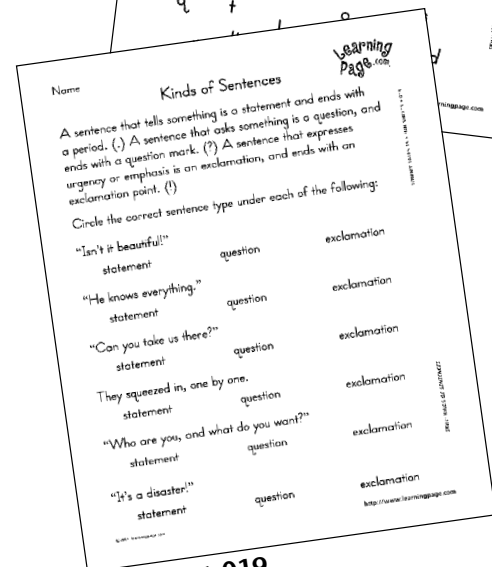 Learning
Page.com
Name
Kinds of Sentences
A sentence that tells something is a statement and ends with
a period. (.) A sentence that asks something is a question, and
ends with a question mark. (?) A sentence that expresses
urgency or emphasis is an exclamation, and ends with an
exclamation point. (!)
Circle the correct sentence type under each of the following:
"Isn't it beautiful!"
statement question exclamation
"He knows everything."
statement question exclamation
"Can you take us there?"
statement question exclamation
They squeezed in, one by one.
statement question exclamation
"Who are you, and what do you want?"
statement question exclamation
"It's a disaster!"
statement question exclamation
http://www.learningpage.com
019